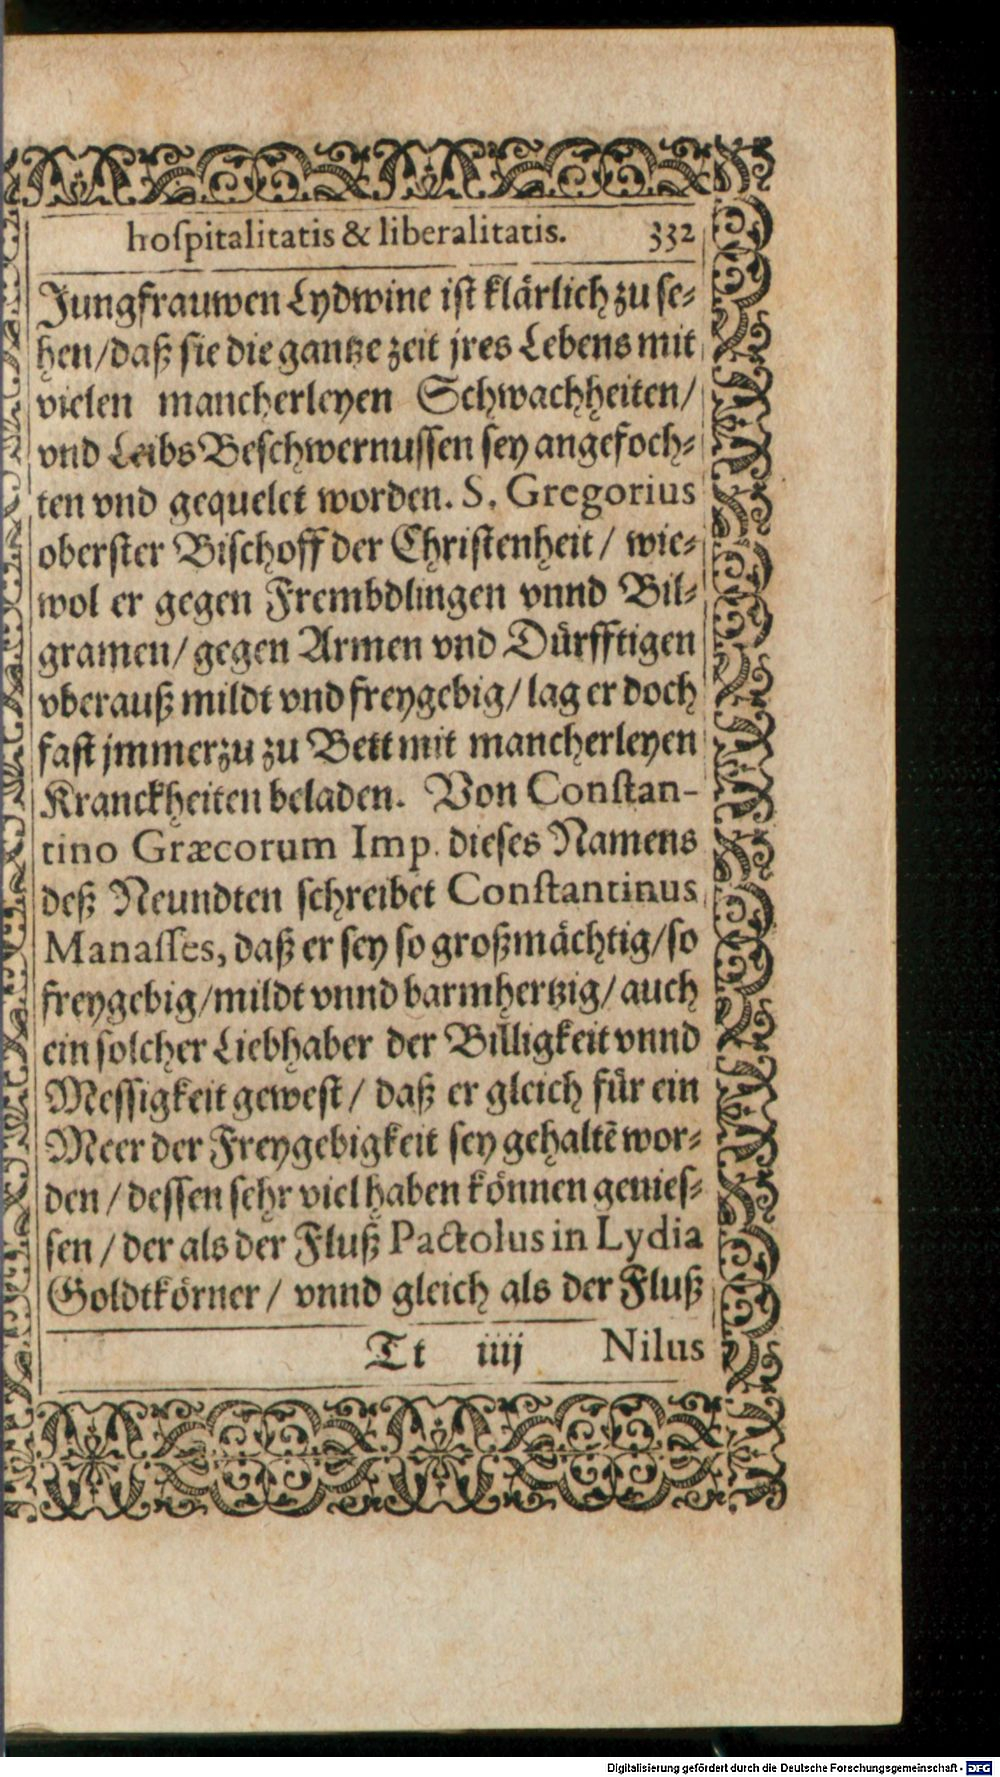 hoſpitalitatis & liberalitatis. 332
Jungfrauwen Lydwine iſt klärlich zu ſe-
hen/ daß ſie die gantze zeit jres Lebens mit
vielen mancherleyen Schwachheiten/
vnd Leibs Beſchwernuſſen ſey angefoch-
ten vnd gequelet worden. S. Gregorius
oberſter Biſchoff der Chriſtenheit/ wie-
wol er gegen Frembdlingen vnnd Bil-
gramen/ gegen Armen vnd Dürfftigen
vberauß mildt vnd freygebig/ lag er doch
faſt jmmerzu zu Bett mit mancherleyen
Kranckheiten beladen. Von Conſtan-
tino Græcorum Imp. dieſes Namens
deß Neundten ſchreibet Conſtantinus
Manaſſes, daß er ſey ſo großmächtig/ ſo
freygebig/ mildt vnnd barmhertzig/ auch
ein ſolcher Liebhaber der Billigkeit vnnd
Meſſigkeit geweſt/ daß er gleich für ein
Meer der Freygebigkeit ſey gehaltē wor-
den/ deſſen ſehr viel haben können genieſ-
ſen/ der als der Fluß Pactolus in Lydia
Goldtkörner/ vnnd gleich als der Fluß
Tt iiij Nilus
Digitalisierung gefördert durch die Deutsche Forschungsgemeinschaft - DFG